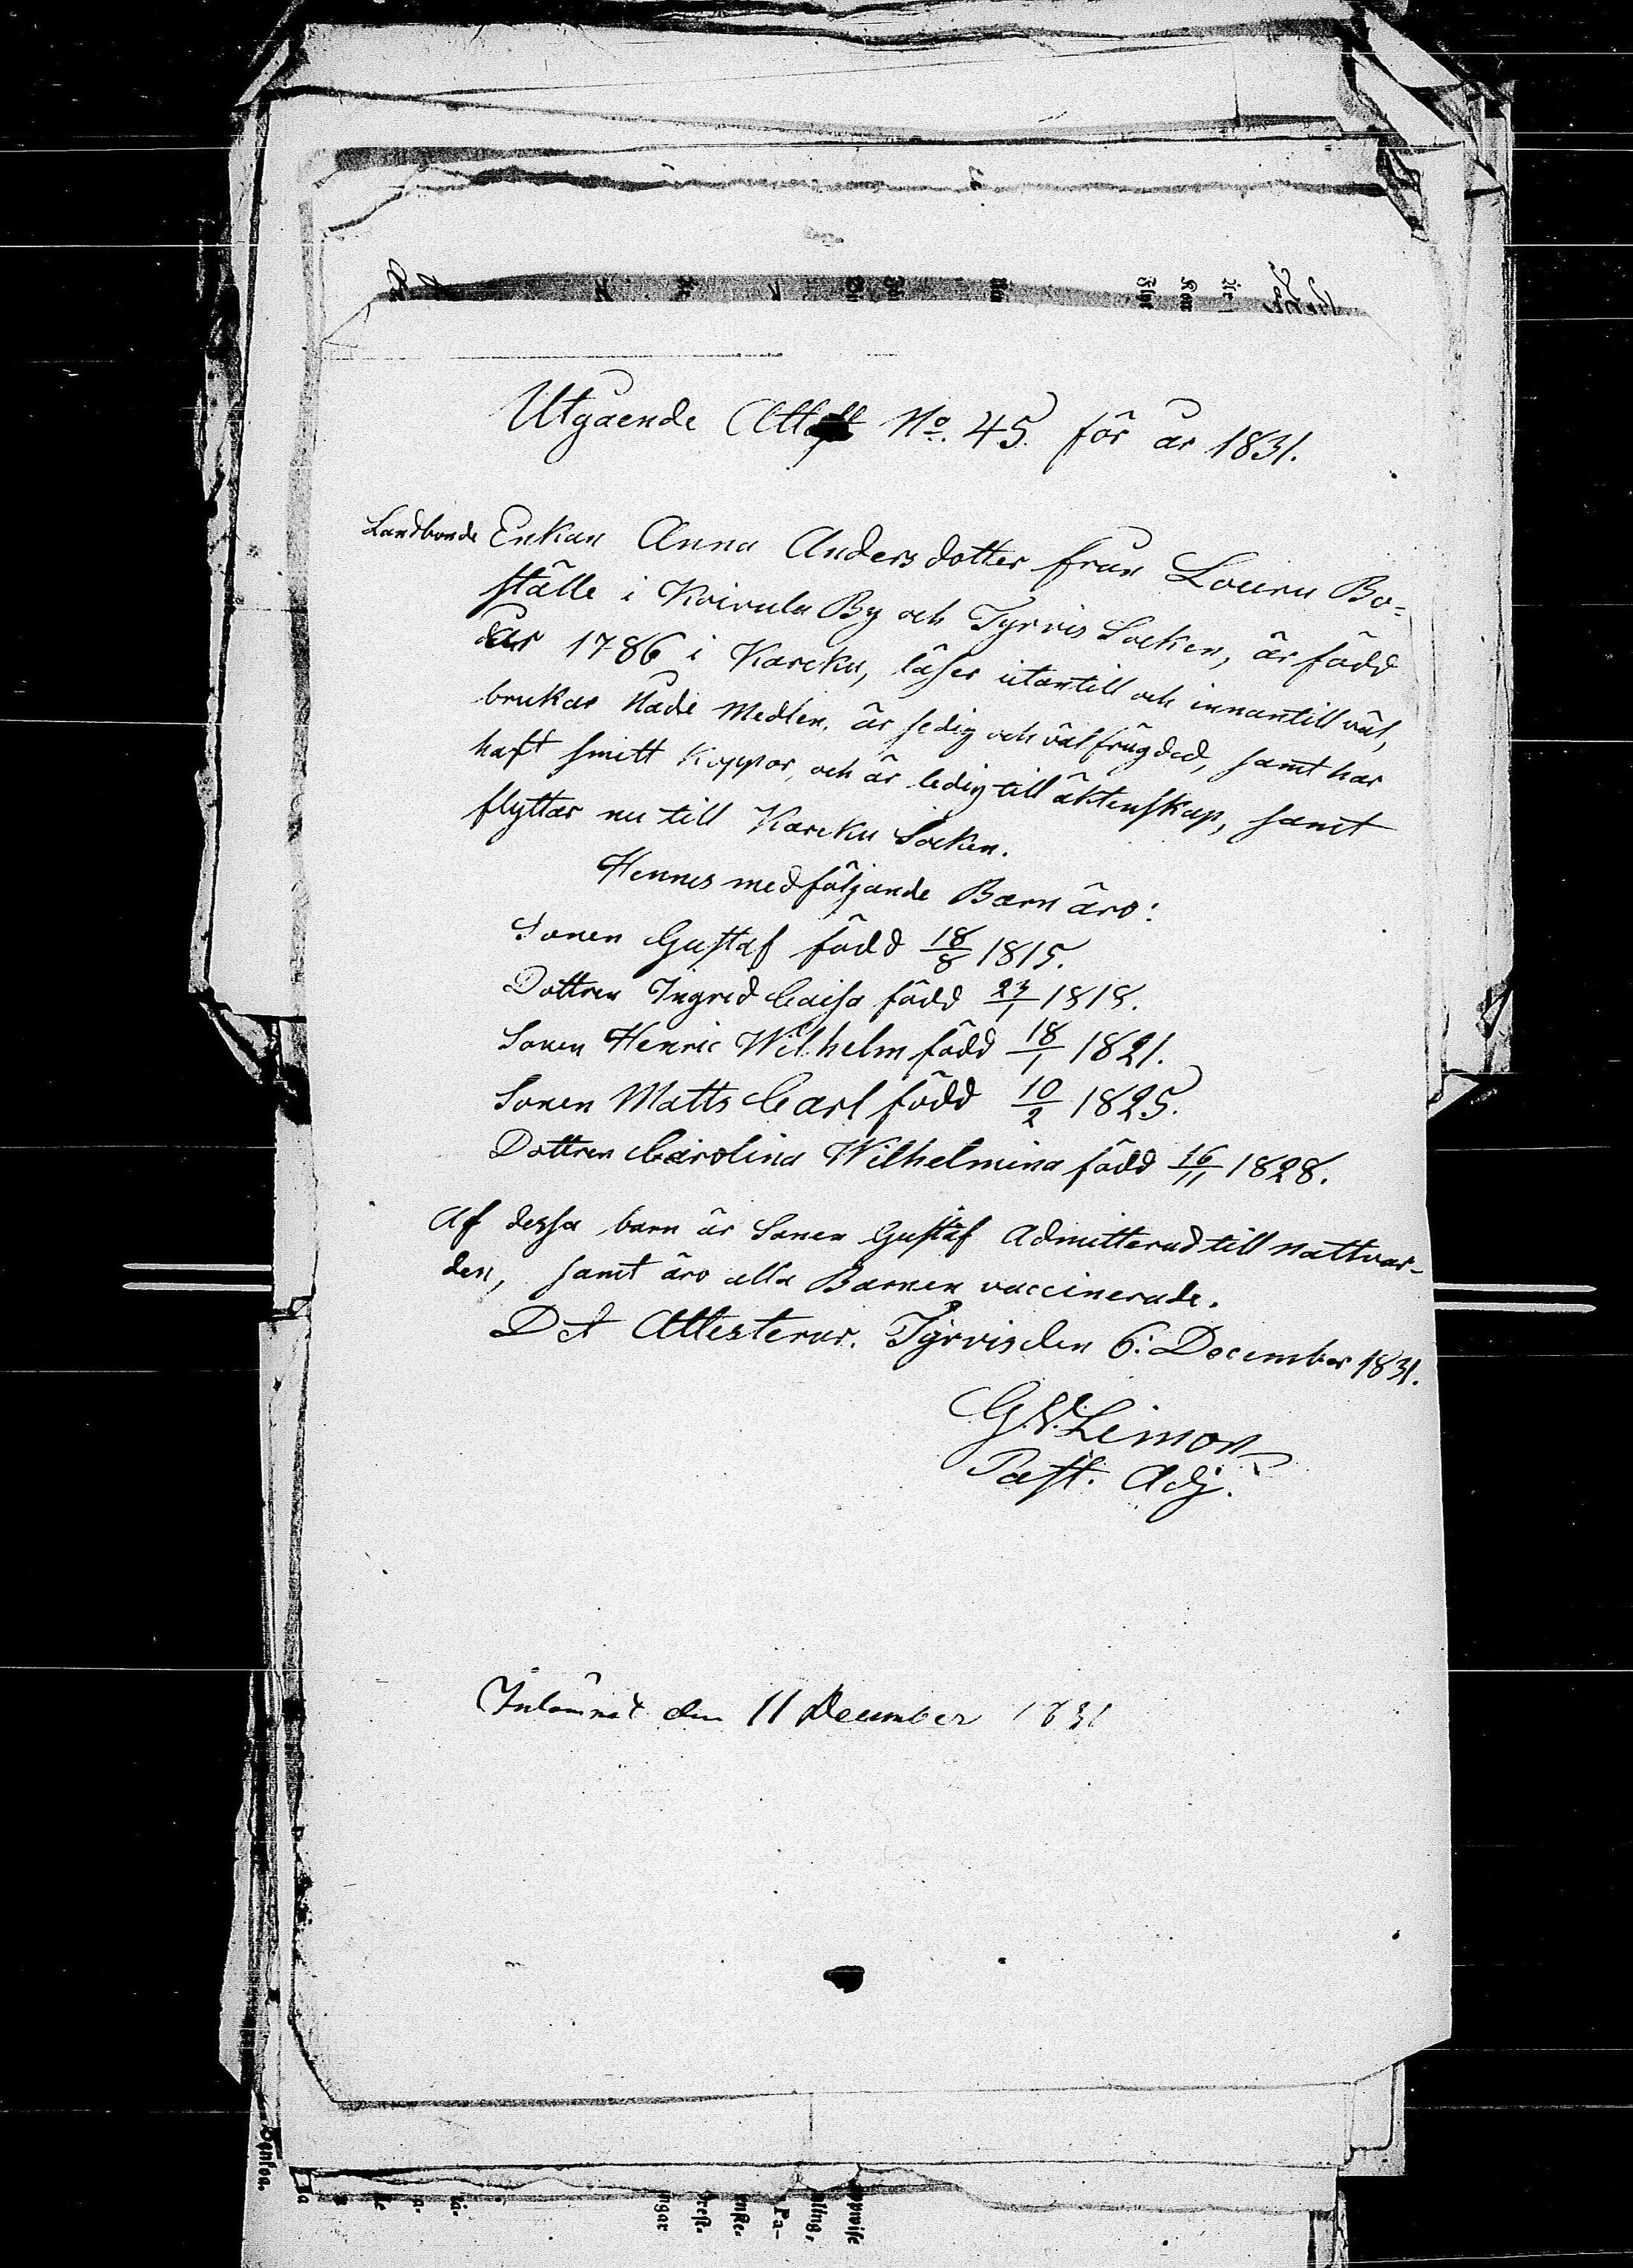 Utgående Attest No. 45. för år 1831.
Landbonde Enkan Anna Andersdotter från Louru Bo-
ställe i Koivula By och Tyrvis Socken, är född
år 1786 i Karcku, läser utantill och innantill väl,
brukar Nåde Medlen, är sedig och välfrägdad, samt har
haft smitt Koppor, och är ledig till äktenskap, samt
flyttar nu till Karcku Socken.
Hennes medföljande Barn äro:
Sonen Gustaf född 18/8 1815.
Dottren Ingred Caisa född 23/1 1818.
Sonen Henric Wilhelm född 18/1 1821.
Sonen Matts Carl född 10/2 1825.
Dottren Carolina Wilhelmina född 16/11 1828.
Af dessa barn är Sonen Gustaf Admitterad till Nattvar-
den, samt äro alla Barnen vaccinerade.
Det Attesterar. Tyrvis den 6: December 1831.
G. V. Limon
Past. Adj.
Inlämnat den 11 December 1831